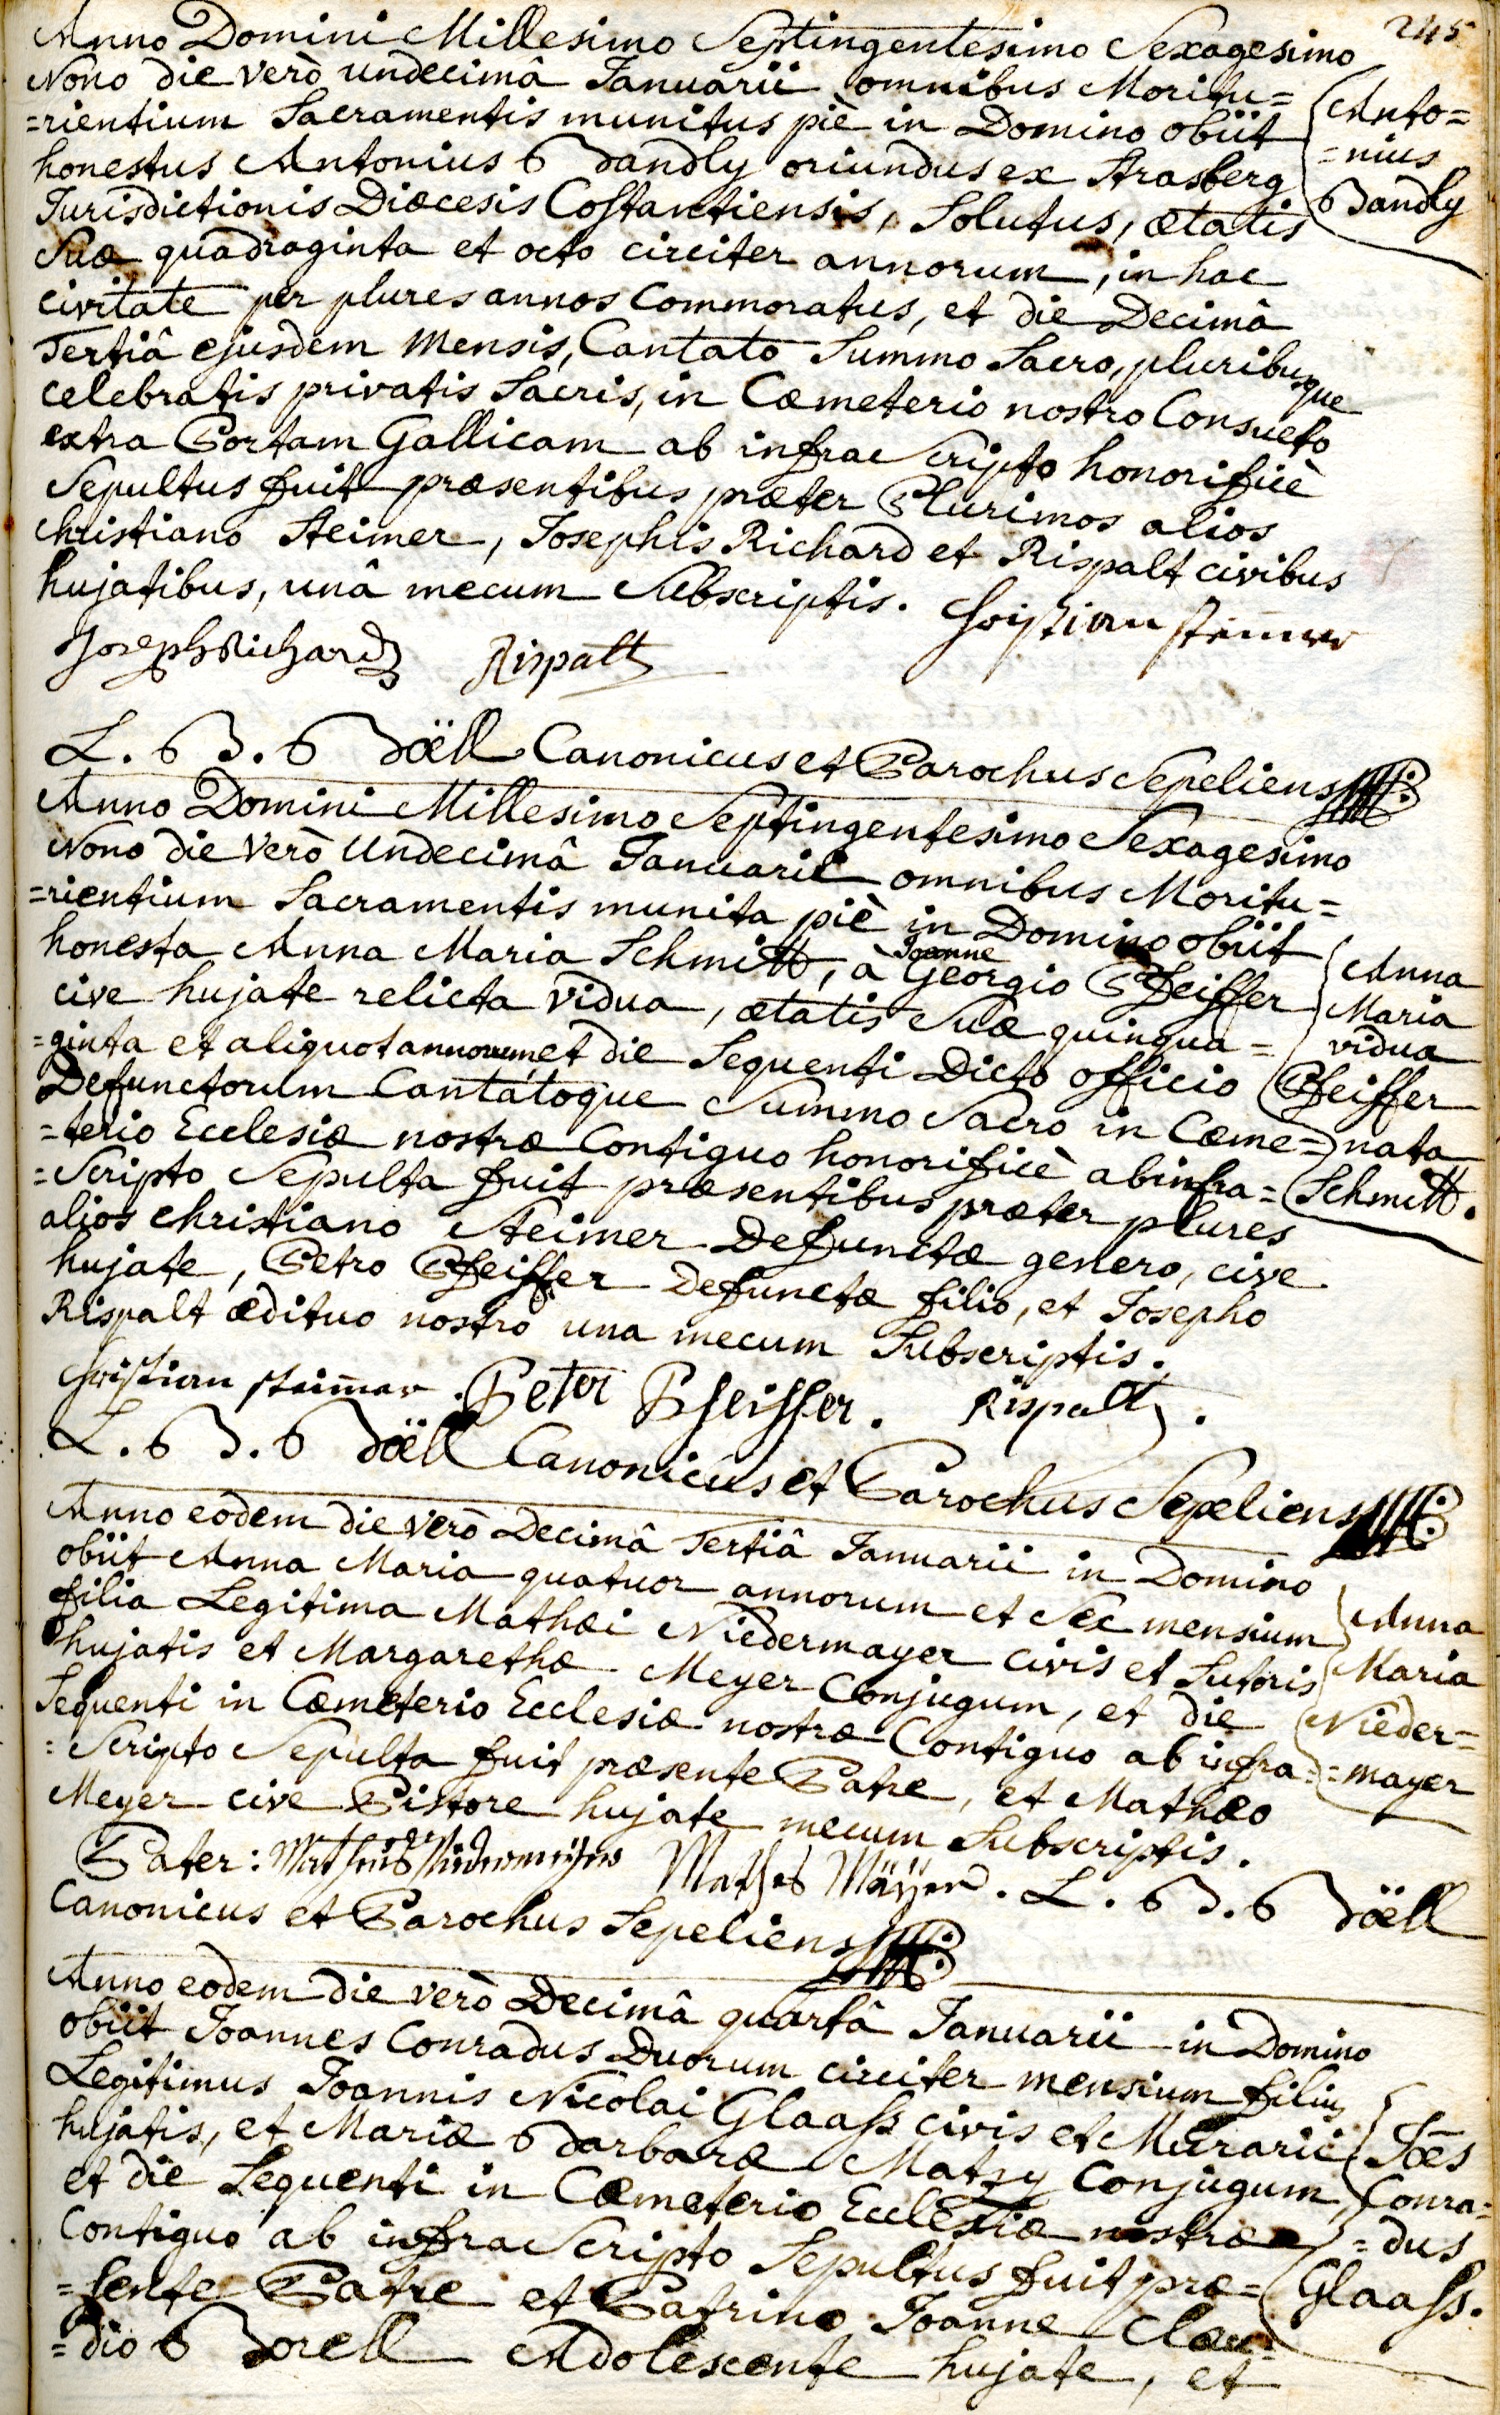 245
Anno Domini Millesimo Septingentesimo Sexagesimo
Nono die verò undecimâ Januarii omnibus Moritu=
=rientium Sacramentis munitus piè in Domino obiit
honestus Antonius Bandly oriundus ex Strasberg
Jurisdictionis Diœcesis Costantiensis, Solutus, ætatis
Suæ quadraginta et octo circiter annorum, in hac
civitate per plures annos Commoratus, et die Decimâ
Tertiâ ejusdem mensis, Cantato Summo Sacro, pluribusque
celebratis privatis Sacris, in Cœmeterio nostro Consueto
extra Portam Gallicam ab infra Scripto honorificè
Sepultus fuit præsentibus præter Plurimos alios
Christiano Steimer, Josephis Richard et Rispalt civibus
hujatibus, unâ mecum Subscriptis. Christian Steimer
Joseph Richard Rispalt
Anto=
=nius
Bandly
L. B. Böell Canonicus et Parochus Sepeliens
Anno Domini Millesimo Septingentesimo Sexagesimo
Nono die Verò Undecimâ Januarii omnibus Moritu=
=rientium Sacramentis munita piè in Domino obiit
honesta Anna Maria Schmitt, à Joanne Georgio Pfeiffer
cive hujate relicta vidua, ætatis Suæ quinqua=
=ginta et aliquot annorum, et die Sequenti Dicto officio
Defunctorum Cantatoque Summo Sacro in Cœme=
=terio Ecclesiæ nostræ Contiguo honorificè ab infra=
=Scripto Sepulta fuit præsentibus præter plures
alios Christiano Steimer Defunctæ genero, cive
hujate, Petro Pfeiffer Defunctæ filio, et Josepho
Rispalt ædituo nostro una mecum Subscriptis.
Christian Steimer. Peter Pfeiffer. Rispalt.
Anna
Maria
vidua
Pfeiffer
nata
Schmitt.
L. B. Böell Canonicus et Parochus Sepeliens
Anno eodem die verò Decimâ Tertiâ Januarii in Domino
obiit Anna Maria quatuor annorum et Sex mensium
filia Legitima Mathæi Niedermayer civis et Sutoris
hujatis et Margarethæ Meyer Conjugum, et die
Sequenti in Cœmeterio Ecclesiæ nostræ Contiguo ab infra=
=Scripto Sepulta fuit præsente Patre, et Mathæo
Meyer cive Pistore hujate mecum Subscriptis.
Pater: Mathes Mäyer. L. B. Böell
Canonicus et Parochus Sepeliens
Anna
Maria
Nieder=
=mayer
Anno eodem die verò Decimâ quartâ Januarii in Domino
obiit Joannes Conradus Duorum circiter mensium filius
Legitimus Joannis Nicolai Glaass civis et Murarii
hujatis, et Mariæ Barbaræ Matzy Conjugum,
et die Sequenti in Cœmeterio Ecclesiæ nostræ
Contiguo ab infra Scripto Sepultus fuit præ=
=sente Patre et Patrino Joanne Clau=
=dio Borell Adolescente hujate, et
Joēs
Conra=
=dus
Glaass.